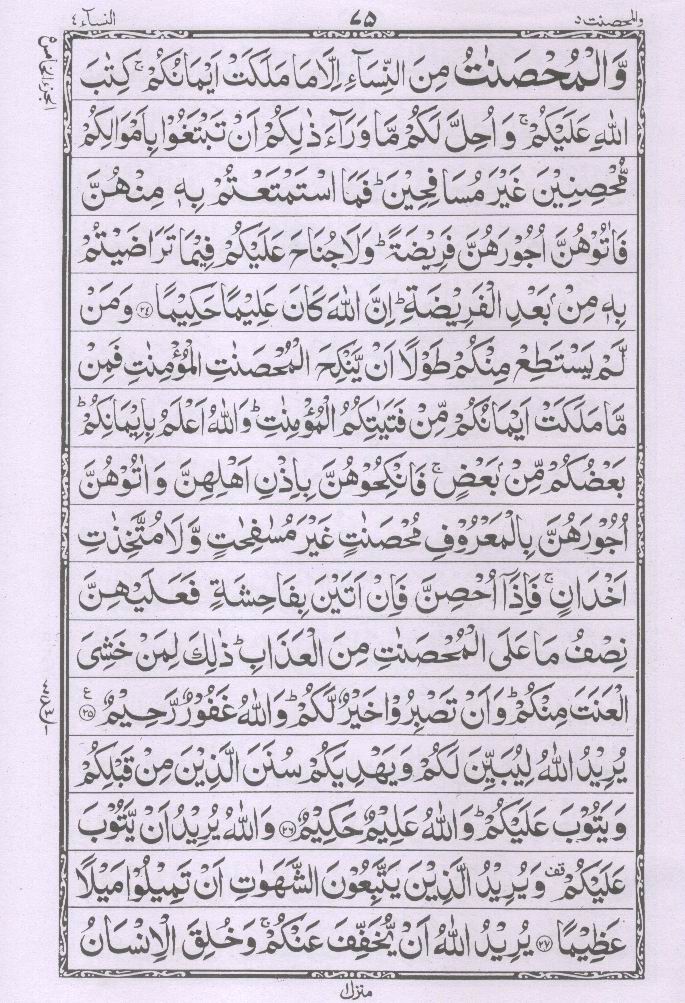 والمحصنت ٥
٧٥
النسآء ٤
وَّالْمُحْصَنٰتُ مِنَ النِّسَآءِ اِلَّا مَا مَلَكَتْ اَيْمَانُكُمْ ۚ كِتٰبَ
اللّٰهِ عَلَيْكُمْ ۚ وَاُحِلَّ لَكُمْ مَّا وَرَآءَ ذٰلِكُمْ اَنْ تَبْتَغُوْا بِاَمْوَالِكُمْ
مُّحْصِنِيْنَ غَيْرَ مُسَافِحِيْنَ ؕ فَمَا اسْتَمْتَعْتُمْ بِهٖ مِنْهُنَّ
فَاٰتُوْهُنَّ اُجُوْرَهُنَّ فَرِيْضَةً ؕ وَلَا جُنَاحَ عَلَيْكُمْ فِيْمَا تَرَاضَيْتُمْ
بِهٖ مِنْۢ بَعْدِ الْفَرِيْضَةِ ؕ اِنَّ اللّٰهَ كَانَ عَلِيْمًا حَكِيْمًا ۝٢٤ وَمَنْ
لَّمْ يَسْتَطِعْ مِنْكُمْ طَوْلًا اَنْ يَّنْكِحَ الْمُحْصَنٰتِ الْمُؤْمِنٰتِ فَمِنْ
مَّا مَلَكَتْ اَيْمَانُكُمْ مِّنْ فَتَيٰتِكُمُ الْمُؤْمِنٰتِ ؕ وَاللّٰهُ اَعْلَمُ بِاِيْمَانِكُمْ ؕ
بَعْضُكُمْ مِّنْۢ بَعْضٍ ۚ فَانْكِحُوْهُنَّ بِاِذْنِ اَهْلِهِنَّ وَاٰتُوْهُنَّ
اُجُوْرَهُنَّ بِالْمَعْرُوْفِ مُحْصَنٰتٍ غَيْرَ مُسٰفِحٰتٍ وَّلَا مُتَّخِذٰتِ
اَخْدَانٍ ۚ فَاِذَآ اُحْصِنَّ فَاِنْ اَتَيْنَ بِفَاحِشَةٍ فَعَلَيْهِنَّ
نِصْفُ مَا عَلَى الْمُحْصَنٰتِ مِنَ الْعَذَابِ ؕ ذٰلِكَ لِمَنْ خَشِيَ
الْعَنَتَ مِنْكُمْ ؕ وَاَنْ تَصْبِرُوْا خَيْرٌ لَّكُمْ ؕ وَاللّٰهُ غَفُوْرٌ رَّحِيْمٌ ۝٢٥ ع
يُرِيْدُ اللّٰهُ لِيُبَيِّنَ لَكُمْ وَيَهْدِيَكُمْ سُنَنَ الَّذِيْنَ مِنْ قَبْلِكُمْ
وَيَتُوْبَ عَلَيْكُمْ ؕ وَاللّٰهُ عَلِيْمٌ حَكِيْمٌ ۝٢٦ وَاللّٰهُ يُرِيْدُ اَنْ يَّتُوْبَ
عَلَيْكُمْ قف وَيُرِيْدُ الَّذِيْنَ يَتَّبِعُوْنَ الشَّهَوٰتِ اَنْ تَمِيْلُوْا مَيْلًا
عَظِيْمًا ۝٢٧ يُرِيْدُ اللّٰهُ اَنْ يُّخَفِّفَ عَنْكُمْ ۚ وَخُلِقَ الْاِنْسَانُ
منزل ١